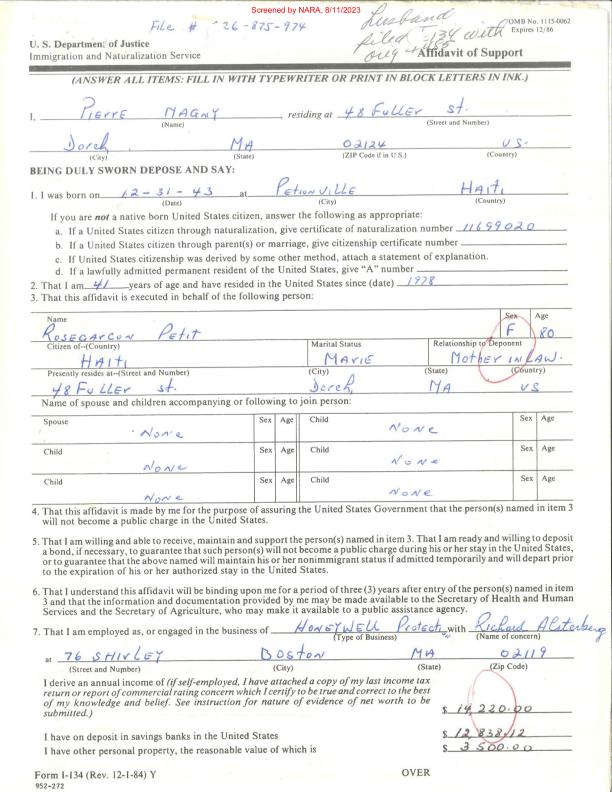 Screened by NARA, 8/11/2023
File # 26-875-974
Husband
filed I-134 with
orig
OMB No. 1115-0062
Expires 12/86
U. S. Department of Justice
Immigration and Naturalization Service
Affidavit of Support
(ANSWER ALL ITEMS: FILL IN WITH TYPEWRITER OR PRINT IN BLOCK LETTERS IN INK.)
I, PIERRE MAGNY, residing at 48 FULLER st.
(Name) (Street and Number)
Dorch MA 02124 US.
(City) (State) (ZIP Code if in U.S.) (Country)
BEING DULY SWORN DEPOSE AND SAY:
1. I was born on 12-31-43 at PETIONVILLE HAITI
(Date) (City) (Country)
If you are not a native born United States citizen, answer the following as appropriate:
a. If a United States citizen through naturalization, give certificate of naturalization number 11699020
b. If a United States citizen through parent(s) or marriage, give citizenship certificate number
c. If United States citizenship was derived by some other method, attach a statement of explanation.
d. If a lawfully admitted permanent resident of the United States, give "A" number
2. That I am 41 years of age and have resided in the United States since (date) 1978
3. That this affidavit is executed in behalf of the following person:
Name Sex Age
ROSEGARCON PETIT F 80
Citizen of--(Country) Marital Status Relationship to Deponent
HAITI MARIE MOTHER IN LAW.
Presently resides at--(Street and Number) (City) (State) (Country)
48 FULLER st. Dorch, MA US
Name of spouse and children accompanying or following to join person:
Spouse Sex Age Child Sex Age
NONE NONE
Child Sex Age Child Sex Age
NONE NONE
Child Sex Age Child Sex Age
NONE NONE
4. That this affidavit is made by me for the purpose of assuring the United States Government that the person(s) named in item 3
will not become a public charge in the United States.
5. That I am willing and able to receive, maintain and support the person(s) named in item 3. That I am ready and willing to deposit
a bond, if necessary, to guarantee that such person(s) will not become a public charge during his or her stay in the United States,
or to guarantee that the above named will maintain his or her nonimmigrant status if admitted temporarily and will depart prior
to the expiration of his or her authorized stay in the United States.
6. That I understand this affidavit will be binding upon me for a period of three (3) years after entry of the person(s) named in item
3 and that the information and documentation provided by me may be made available to the Secretary of Health and Human
Services and the Secretary of Agriculture, who may make it available to a public assistance agency.
7. That I am employed as, or engaged in the business of HONEYWELL Protection with Richard Alsterberg
(Type of Business) (Name of concern)
at 76 SHIRLEY BOSTON MA 02119
(Street and Number) (City) (State) (Zip Code)
I derive an annual income of (if self-employed, I have attached a copy of my last income tax
return or report of commercial rating concern which I certify to be true and correct to the best
of my knowledge and belief. See instruction for nature of evidence of net worth to be
submitted.) $ 14,220.00
I have on deposit in savings banks in the United States $ 12,838.12
I have other personal property, the reasonable value of which is $ 3500.00
Form I-134 (Rev. 12-1-84) Y OVER
952-272